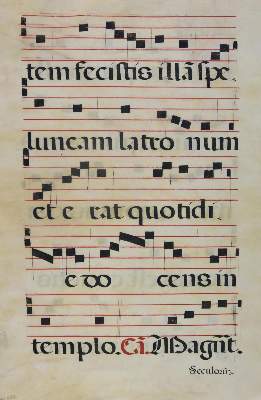 tem fecistis illā spe
luncam latro num
et e rat quotidi
e do cens in
templo. Cā. Magn̄t.
Seculorū.